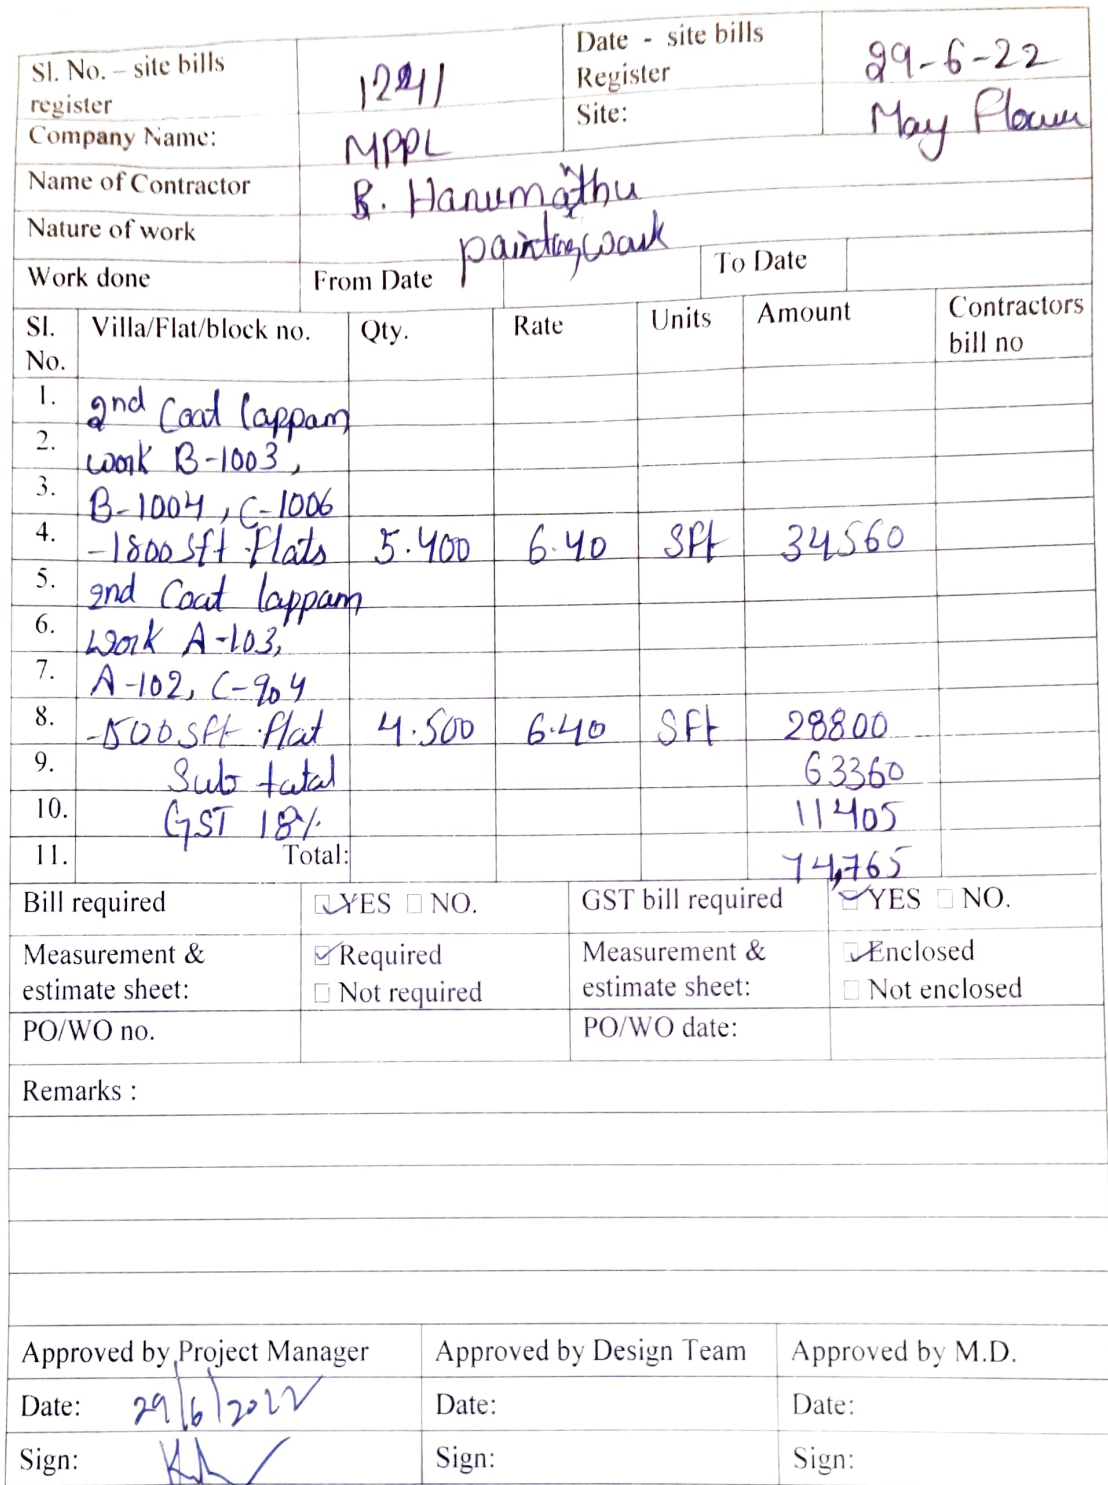 Sl. No. – site bills register 1241 Date - site bills Register 29-6-22
Company Name: MPPL Site: May Flower
Name of Contractor B. Hanumanthu
Nature of work painting work
Work done From Date To Date
Sl. No. Villa/Flat/block no. Qty. Rate Units Amount Contractors bill no
1. 2nd Coat lappam
2. work B-1003,
3. B-1004, C-1006
4. -1800 Sft Flats 5.400 6.40 Sft 34560
5. 2nd Coat lappam
6. Work A-103,
7. A-102, C-904
8. -1500 Sft flat 4.500 6.40 Sft 28800
9. Sub total 63360
10. GST 18% 11405
11. Total: 74,765
Bill required YES NO. GST bill required YES NO.
Measurement & estimate sheet: Required Not required Measurement & estimate sheet: Enclosed Not enclosed
PO/WO no. PO/WO date:
Remarks :
Approved by Project Manager Approved by Design Team Approved by M.D.
Date: 29/6/2022 Date: Date:
Sign: Sign: Sign: